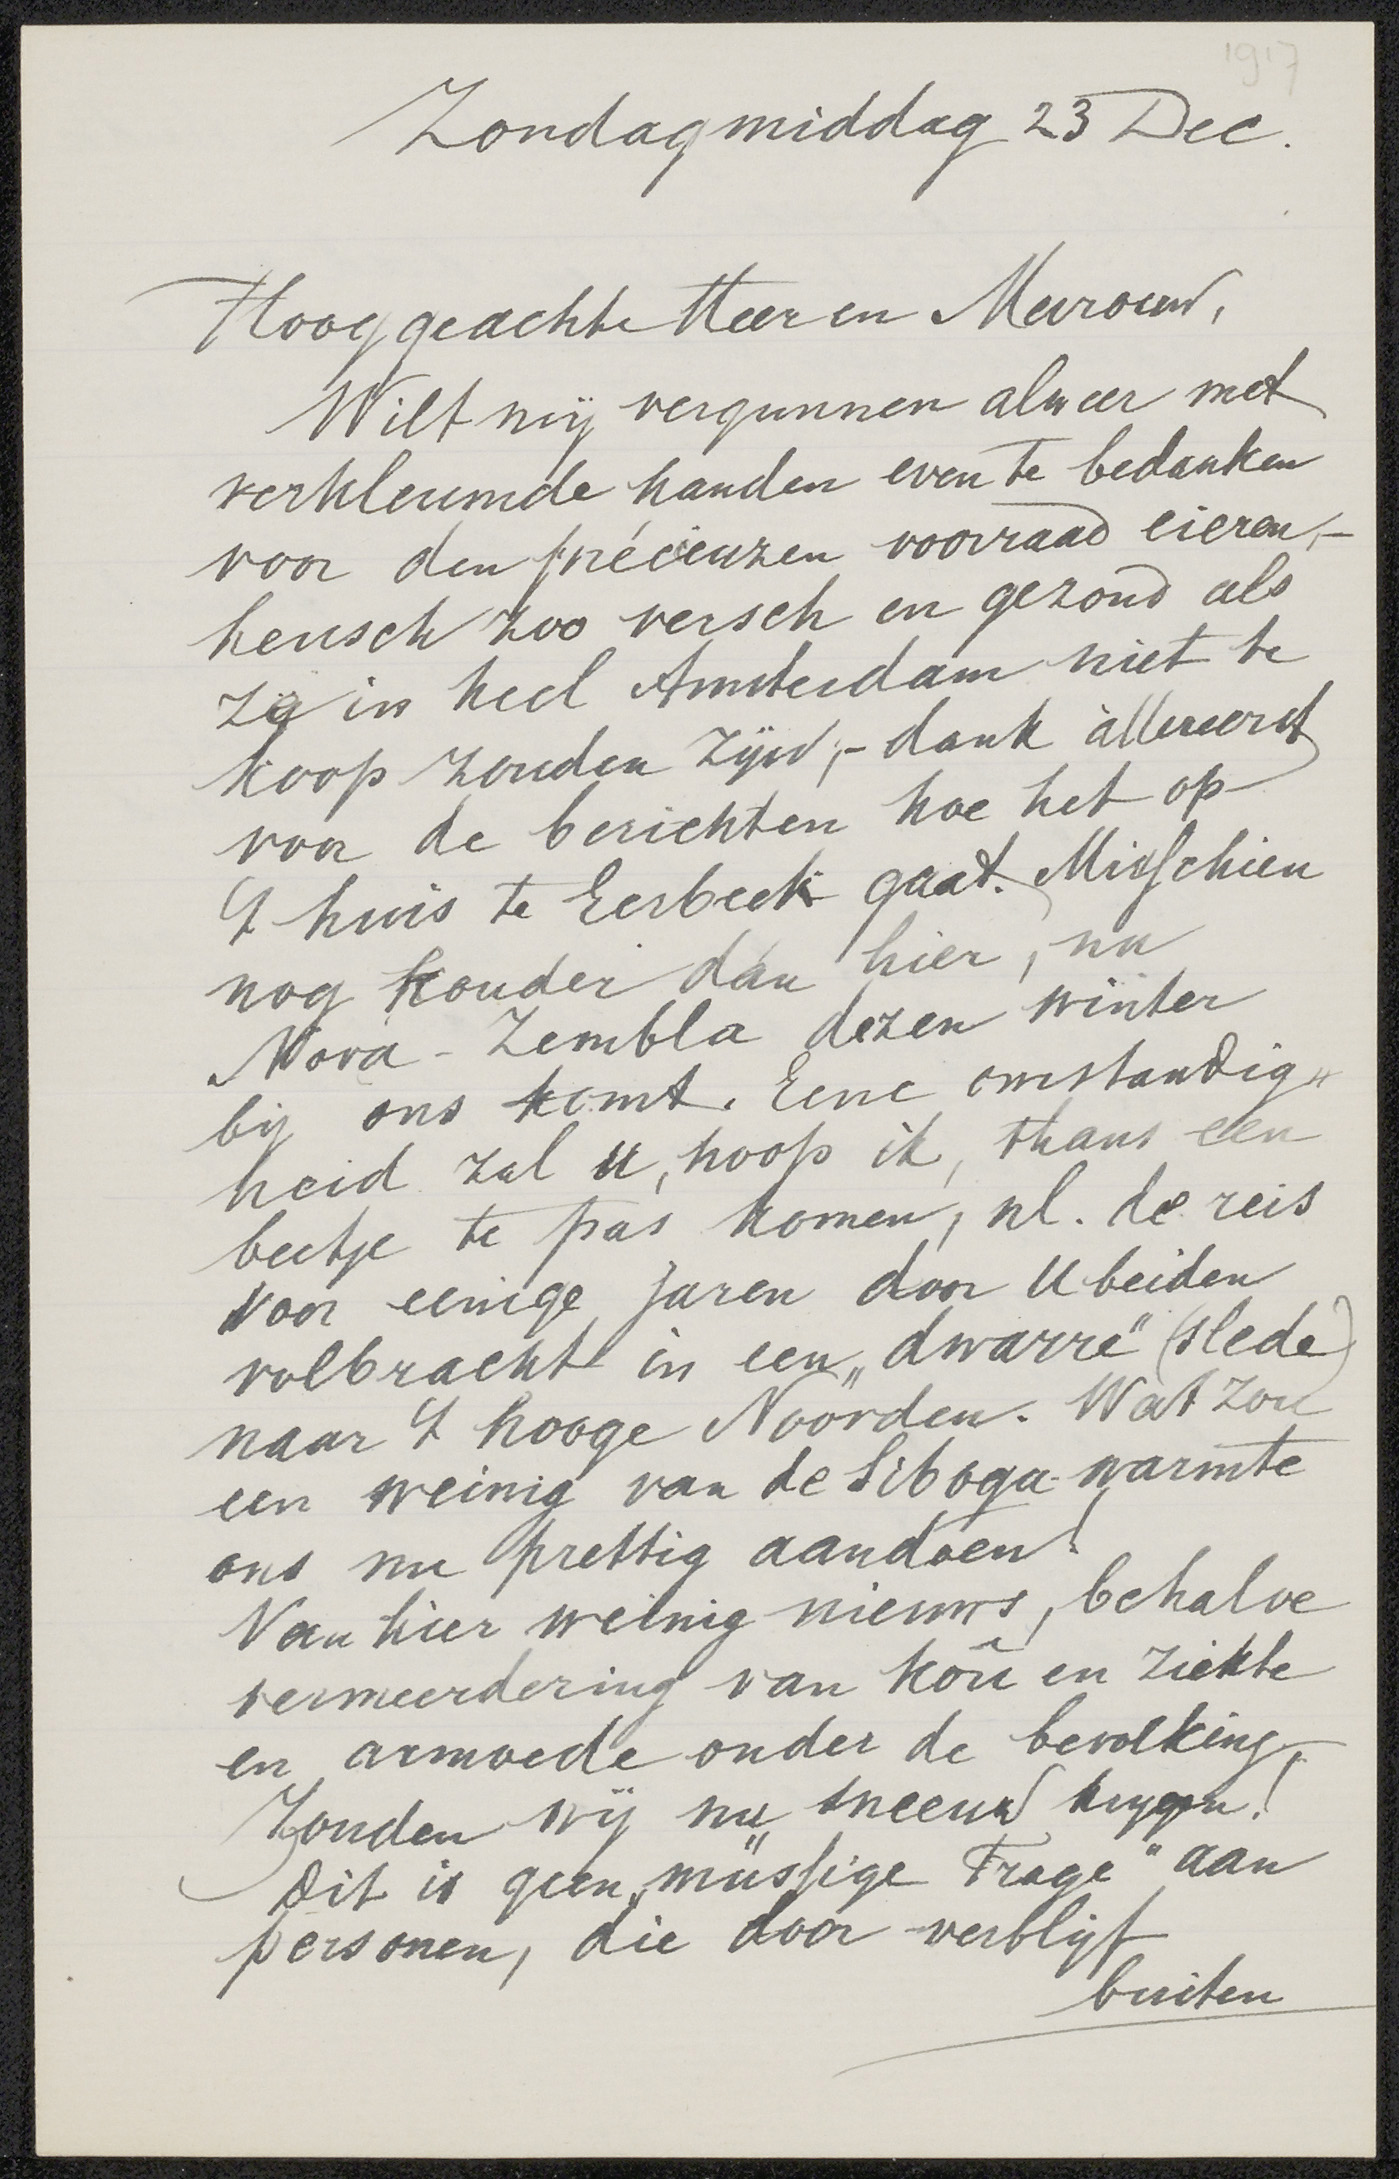 1917
Zondagmiddag 23 Dec.
Hooggeachte Heer en Mevrouw,
Wilt mij vergunnen alweer met
verkleumde handen even te bedanken
voor den précieuzen voorraad eieren,-
heusch zoo versch en gezond als
ze in heel Amsterdam niet te
koop zouden zijn,- dank àllereerst
voor de berichten hoe het op
't huis te Eerbeek gaat. Misschien
nog kouder dan hier, nu
Nova-Zembla dezen winter
bij ons komt. Eene omstandig„
heid zal u, hoop ik, thans een
beetje te pas komen, nl. de reis
voor eenige jaren door U beiden
volbracht in een „dwarre" (slede)
naar 't hooge Noorden. Wat zou
een weinig van de Siboga-warmte
ons nu prettig aandoen!
Van hier weinig nieuws, behalve
vermeerdering van koû en ziekte
en armoede onder de bevolking,
Zouden wij nu sneeuw krijgen!
Dit is geen „müssige Frage" aan
personen, die door verblijf
buiten